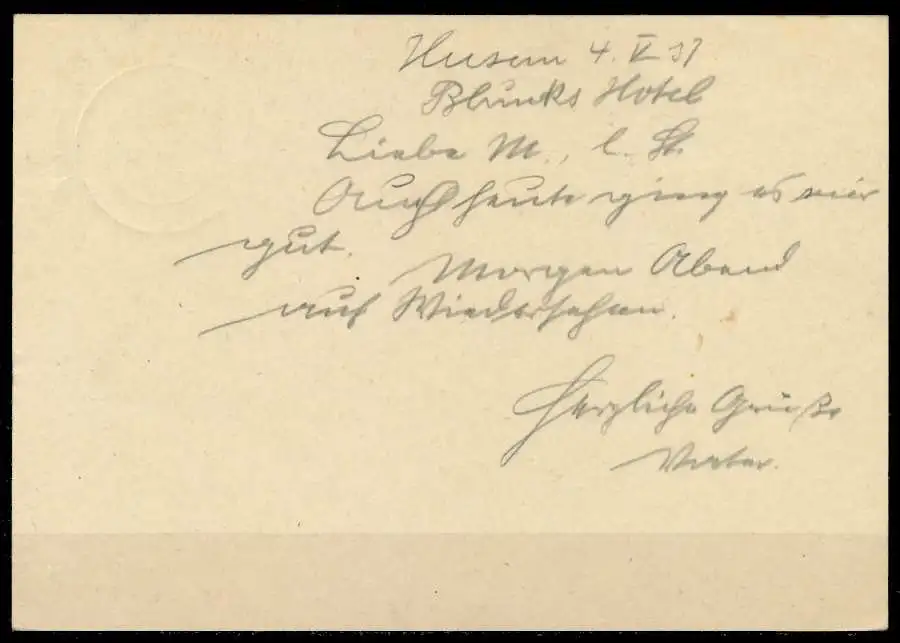 Husum 4. V 37
Blunks Hotel
Liebe M., l. St.
Auch heute ging es mir
gut.
Morgen Abend
auf Wiedersehen.
Herzliche Grüße
Vater.